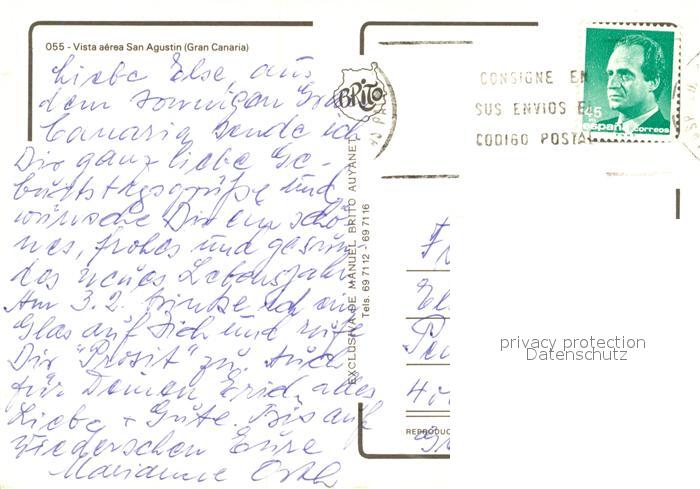 055 - Vista aérea San Agustin (Gran Canaria)
Liebe Else, aus
dem sonnigen Gran
Canaria sende ich
Dir ganz liebe Ge-
burtstagsgrüße und
wünsche Dir ein schö-
nes, frohes und gesun-
des neues Lebensjahr.
Am 3.2. trinke ich ein
Glas auf Dich und rufe
Dir "Prosit" zu. Auch
für Deinen Erid alles
Liebe + Gute. Bis auf
Wiedersehen Eure
Marianne
BRITO
EXCLUSIVA DE MANUEL BRITO AUYANET
Tels. 69 7112 - 69 7116
CONSIGNE EN
SUS ENVIOS E
CODIGO POSTA
45
españa correos
privacy protection
Datenschutz
REPRODUC